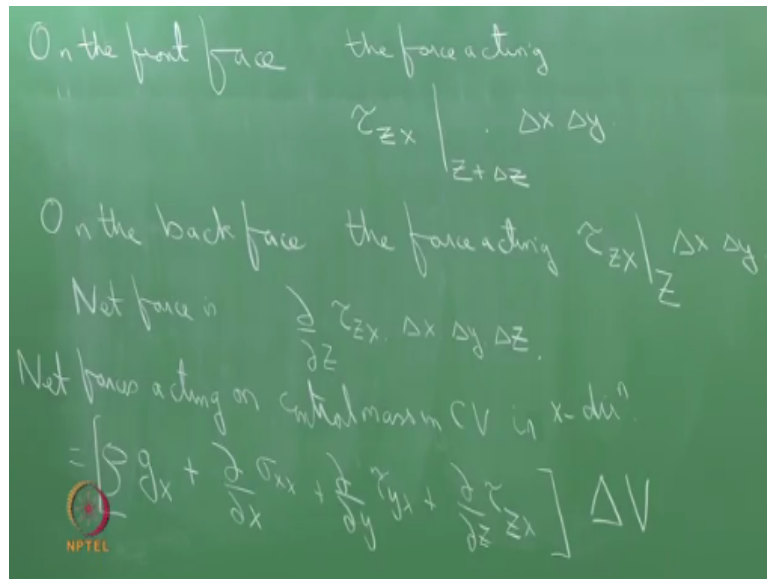 On the front face the force acting
τzx |z+Δz · Δx Δy.
On the back face the force acting τzx |z Δx Δy.
Net force is ∂/∂z τzx. Δx Δy Δz.
Net forces acting on control mass in CV in x-dirⁿ.
= [ρ gx + ∂/∂x σxx + ∂/∂y τyx + ∂/∂z τzx] ΔV
NPTEL